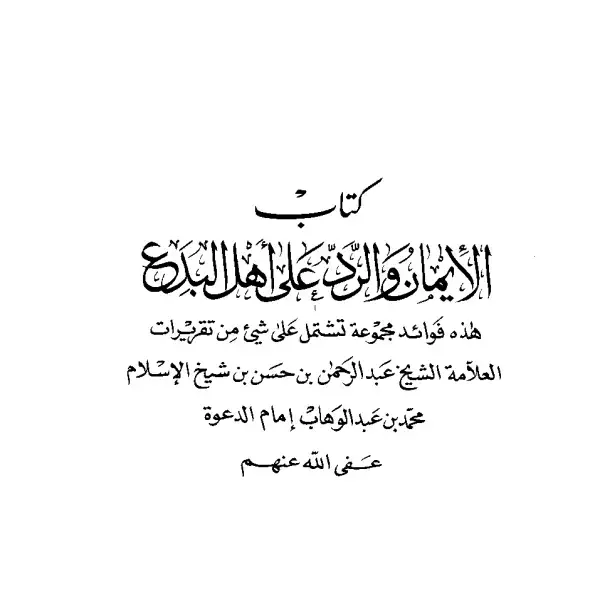 كتاب
الإيمان والرد على أهل البدع
هذه فوائد مجموعة تشتمل على شيء من تقريرات
العلامة الشيخ عبد الرحمن بن حسن بن شيخ الإسلام
محمد بن عبد الوهاب إمام الدعوة
عفى الله عنهم